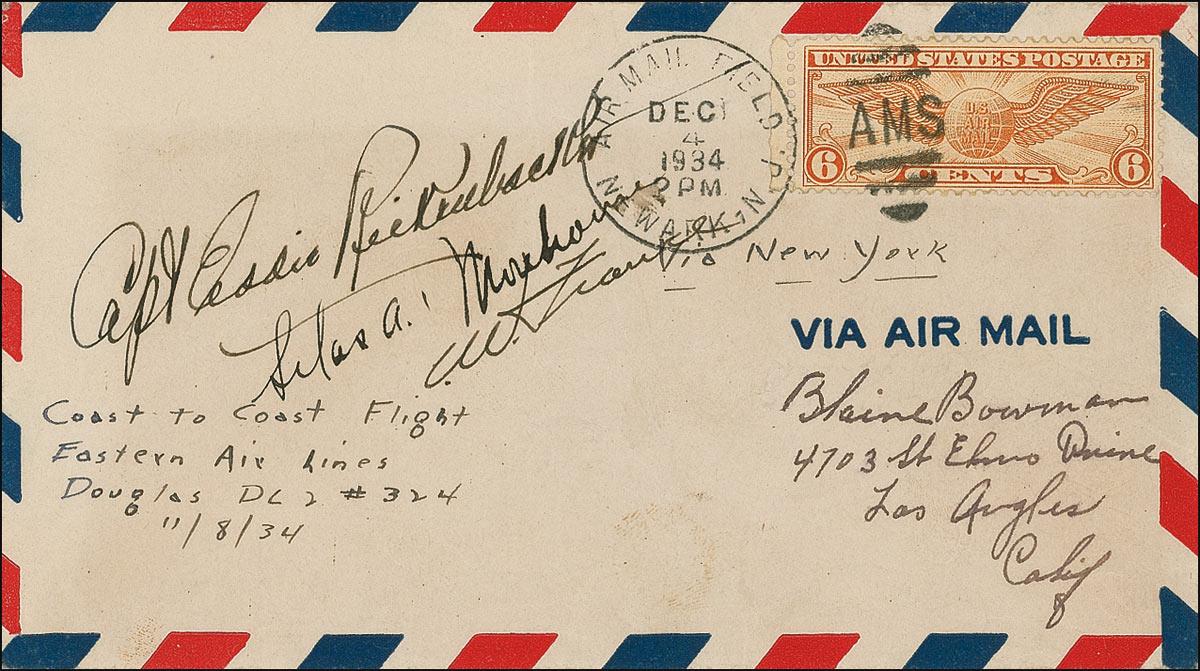 AIR MAIL FIELD P.
DEC
4
1934
2 PM
NEWARK, N
UNITED STATES POSTAGE
U.S.
AIR
MAIL
AMS
6 CENTS 6
Capt Eddie Rickenbacker
Silas A. Morehouse
C.W. France
Via New York
VIA AIR MAIL
Blaine Bowman
4703 St Elmo Drive
Los Angles
Calif
8
Coast to Coast Flight
Eastern Air Lines
Douglas DC 2 # 324
11/8/34